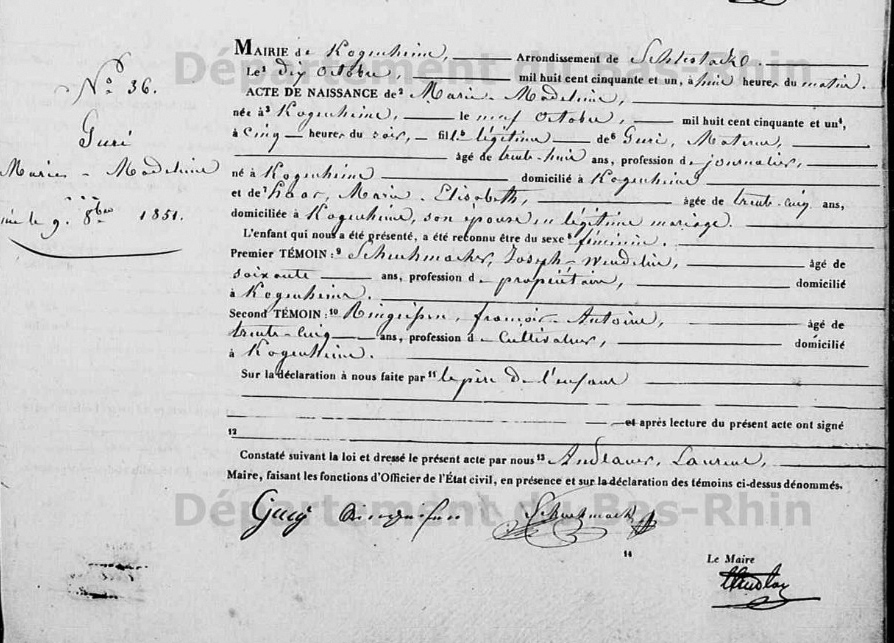 Département du Bas-Rhin
N° 36.
Guri
Marie - Madeleine
née le 9. 8bre 1851.
MAIRIE de Kogenheim, Arrondissement de Schlestadt.
Le¹ dix octobre, mil huit cent cinquante et un, à huit heures du matin.
ACTE DE NAISSANCE de² Marie - Madeleine,
née à³ Kogenheim, le neuf octobre, mil huit cent cinquante et un⁴,
à cinq heures du soir, fille⁵ légitime de⁶ Guri, Materne,
âgé de trente-huit ans, profession de journalier,
né à Kogenheim domicilié à Kogenheim
et de⁷ Haas, Marie - Elisabeth, âgée de trente-cinq ans,
domiciliée à Kogenheim, son épouse en légitime mariage.
L'enfant qui nous a été présenté, a été reconnu être du sexe⁸ féminin.
Premier TÉMOIN :⁹ Schuhmacher, Joseph - Wendelin, âgé de
soixante ans, profession de propriétaire, domicilié
à Kogenheim.
Second TÉMOIN :¹⁰ Ringeisen, françois - Antoine, âgé de
trente-cinq ans, profession de Cultivateur, domicilié
à Kogenheim.
Sur la déclaration à nous faite par¹¹ le père de l'enfant
et après lecture du présent acte ont signé
12
Constaté suivant la loi et dressé le présent acte par nous¹³ Andlauer, Laurent,
Maire, faisant les fonctions d'Officier de l'État civil, en présence et sur la déclaration des témoins ci-dessus dénommés.
Département du Bas-Rhin
Ringeisen Schuhmacher
14
Le Maire
Andlauer